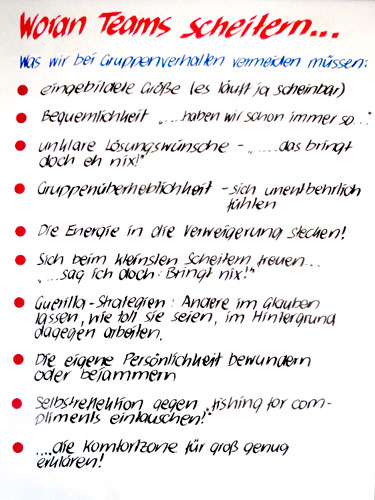 Woran Teams scheitern...
Was wir bei Gruppenverhalten vermeiden müssen:
eingebildete Größe (es läuft ja scheinbar)
Bequemlichkeit „....haben wir schon immer so..."
unklare Lösungswünsche - „....das bringt
doch eh nix!"
Gruppenüberheblichkeit - sich unentbehrlich
fühlen
Die Energie in die Verweigerung stecken!
Sich beim kleinsten Scheitern freuen...
„...sag ich doch: Bringt nix!"
Guerilla-Strategien: Andere im Glauben
lassen, wie toll sie seien, im Hintergrund
dagegen arbeiten.
Die eigene Persönlichkeit bewundern
oder bejammern
Selbstreflektion gegen „fishing for com-
pliments eintauschen!"
....die Komfortzone für groß genug
erklären!